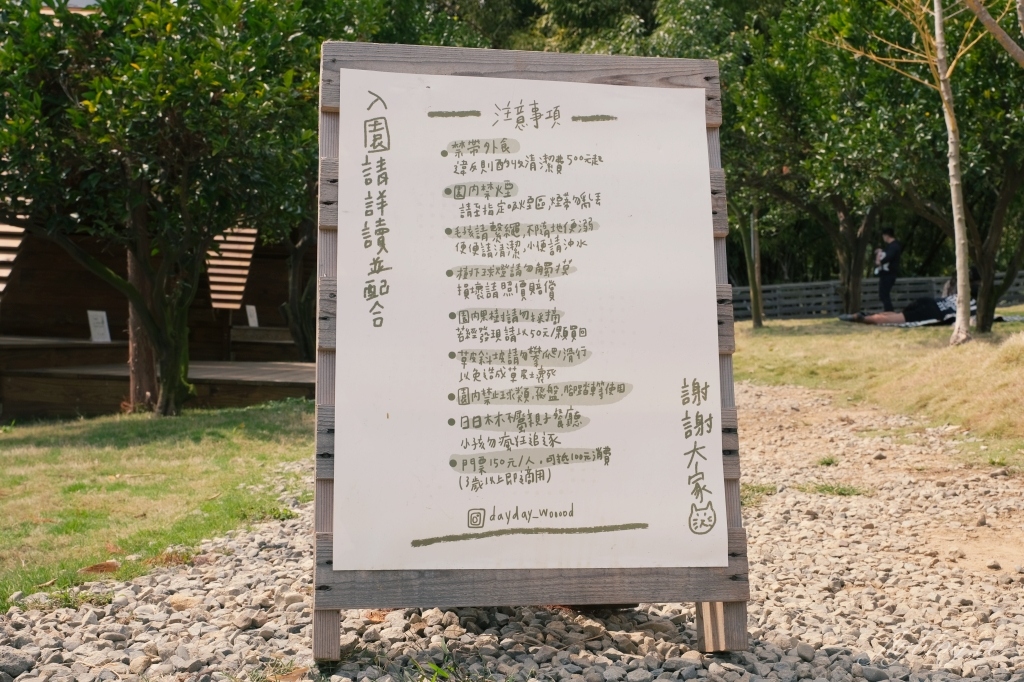 入園請詳讀並配合
注意事項
禁帶外食
違反則酌收清潔費500元起
園內禁煙
請至指定吸煙區,煙蒂勿亂丟
毛孩請繫繩,不隨地便溺
便便請清潔,小便請沖水
樹下球燈請勿觸摸
損壞請照價賠償
園內果樹請勿採摘
若經發現請以50元/顆買回
草皮斜坡請勿攀爬/滑行
以免造成草皮壽死
園內禁止球類,飛盤,腳踏車等使用
日日木木不屬親子餐廳
小孩勿瘋狂追逐
門票150元/人,可抵100元消費
(3歲以上即適用)
dayday_wooood
謝謝大家